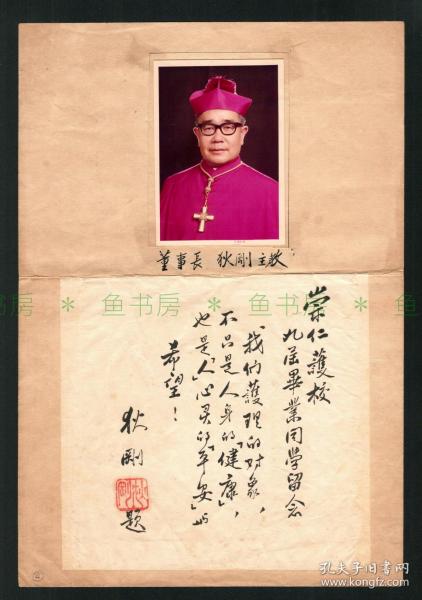 董事長 狄剛主教
崇仁護校
九屆畢業同學留念
我們護理的对象，
不只是人身的「健康」，
也是「人」心灵的「平安」与
希望！
狄剛
題
鱼书房 * 鱼书房 * 鱼书房 * 鱼书房
孔夫子旧书网
www.kongfz.com